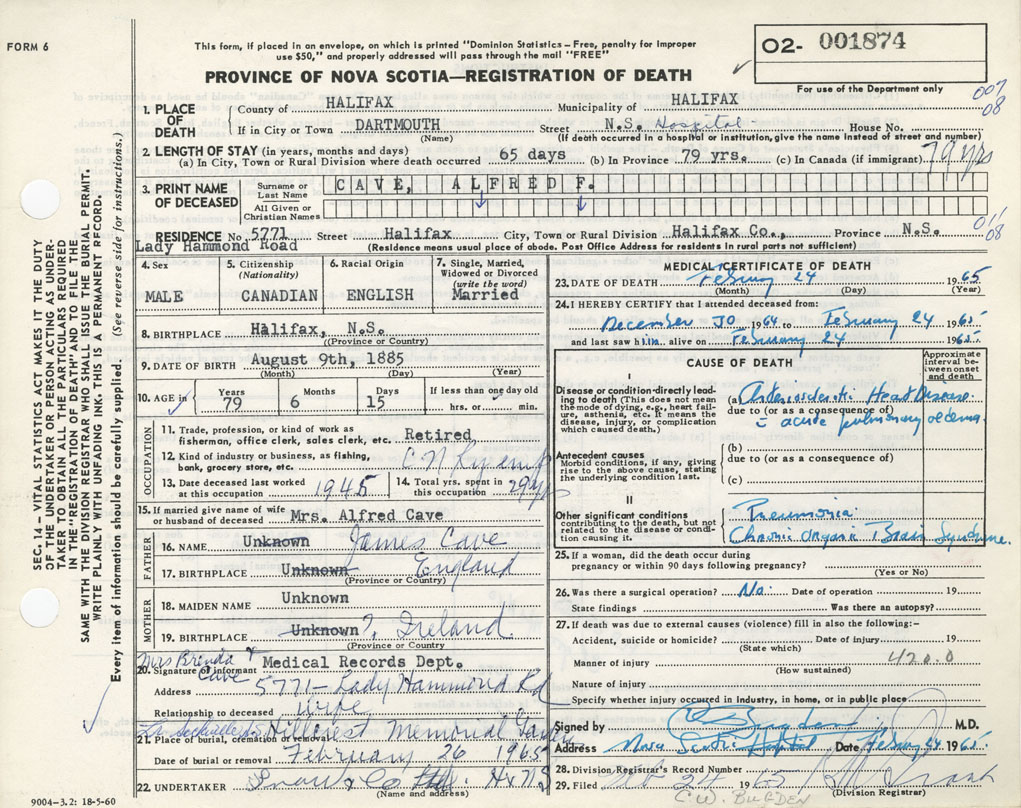 FORM 6
This form, if placed in an envelope, on which is printed "Dominion Statistics—Free, penalty for improper
use $50," and properly addressed will pass through the mail "FREE"
O2- 001874
For use of the Department only
PROVINCE OF NOVA SCOTIA—REGISTRATION OF DEATH
007
08
1. PLACE OF DEATH
County of HALIFAX Municipality of HALIFAX
If in City or Town DARTMOUTH Street N.S. Hospital House No.
(Name) (If death occurred in a hospital or institution, give the name instead of street and number)
2. LENGTH OF STAY (in years, months and days)
(a) In City, Town or Rural Division where death occurred 65 days (b) In Province 79 yrs. (c) In Canada (if immigrant) 79 yrs
3. PRINT NAME OF DECEASED
Surname or Last Name CAVE, ALFRED F.
All Given or Christian Names
RESIDENCE No. 5771 Street Halifax City, Town or Rural Division Halifax Co., Province N.S.
Lady Hammond Road (Residence means usual place of abode. Post Office Address for residents in rural parts not sufficient)
08
4. Sex MALE
5. Citizenship (Nationality) CANADIAN
6. Racial Origin ENGLISH
7. Single, Married, Widowed or Divorced (write the word) Married
8. BIRTHPLACE Halifax, N.S.
(Province or Country)
9. DATE OF BIRTH August 9th, 1885
(Month) (Day) (Year)
10. AGE in Years 79 Months 6 Days 15 If less than one day old hrs. or min.
OCCUPATION
11. Trade, profession, or kind of work as fisherman, office clerk, sales clerk, etc. Retired
12. Kind of industry or business, as fishing, bank, grocery store, etc. C N Ry emp
13. Date deceased last worked at this occupation 1945
14. Total yrs. spent in this occupation 29 yrs
15. If married give name of wife or husband of deceased Mrs. Alfred Cave
FATHER
16. NAME Unknown James Cave
17. BIRTHPLACE Unknown England
(Province or Country)
MOTHER
18. MAIDEN NAME Unknown
19. BIRTHPLACE Unknown ?, Ireland
(Province or Country)
Mrs Brenda Cave
20. Signature of informant Medical Records Dept.
Address 5771- Lady Hammond Rd
Relationship to deceased wife
21. Place of burial, cremation or removal Hillcrest Memorial
Date of burial or removal February 26 1965
22. UNDERTAKER Snow & Co Hx NS
(Name and address)
MEDICAL CERTIFICATE OF DEATH
23. DATE OF DEATH February 24 1965
(Month) (Day) (Year)
24. I HEREBY CERTIFY that I attended deceased from:
December 30 1964 to February 24 1965
and last saw him alive on February 24 1965
CAUSE OF DEATH
Approximate interval between onset and death
I
Disease or condition directly leading to death (This does not mean the mode of dying, e.g., heart failure, asthenia, etc. It means the disease, injury, or complication which caused death.)
(a) Arteriosclerotic Heart Disease
due to (or as a consequence of)
c acute pulmonary oedema
Antecedent causes
Morbid conditions, if any, giving rise to the above cause, stating the underlying condition last.
(b)
due to (or as a consequence of)
(c)
II
Other significant conditions
contributing to the death, but not related to the disease or condition causing it.
Pneumonia
Chronic Organic Brain Syndrome.
25. If a woman, did the death occur during
pregnancy or within 90 days following pregnancy?
(Yes or No)
26. Was there a surgical operation? No. Date of operation 19
State findings Was there an autopsy?
27. If death was due to external causes (violence) fill in also the following:—
Accident, suicide or homicide? Date of injury 19
(State which)
Manner of injury 420.0
(How sustained)
Nature of injury
Specify whether injury occurred in industry, in home, or in public place
Signed by M.D.
Address Nova Scotia Hospital Date February 24 1965
28. Division Registrar's Record Number
29. Filed 1965
(Division Registrar)
C.W. BUGDEN
SEC. 14 — VITAL STATISTICS ACT MAKES IT THE DUTY
OF THE UNDERTAKER OR PERSON ACTING AS UNDERTAKER
TO OBTAIN ALL THE PARTICULARS REQUIRED
IN THE "REGISTRATION OF DEATH" AND TO FILE THE
SAME WITH THE DIVISION REGISTRAR WHO SHALL ISSUE THE BURIAL PERMIT.
WRITE PLAINLY WITH UNFADING INK. THIS IS A PERMANENT RECORD.
Every item of information should be carefully supplied. (See reverse side for instructions.)
9004-3.2: 18-5-60